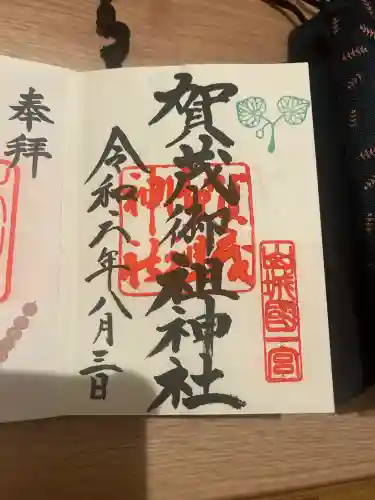 奉拝
賀茂御祖神社
令和六年八月三日
山城國一宮